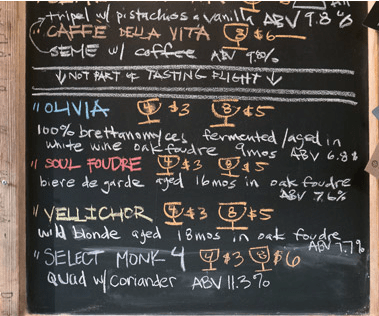 tripel w/ pistachios & vanilla ABV 9.8%
"CAFFE DELLA VITA 8 $6
SEME w/ coffee ABV 9.8%
↓ NOT PART OF TASTING FLIGHT ↓
"OLIVIA 4 $3 8 $5
100% brettanomyces fermented/aged in
white wine oak foudre 9mos ABV 6.8%
"SOUL FOUDRE 4 $3 8 $5
biere de garde aged 16mos in oak foudre
ABV 7.6%
"VELLICHOR 4 $3 8 $5
wild blonde aged 18mos in oak foudre
ABV 7.7%
"SELECT MONK 4 4 $3 8 $6
Quad w/ Coriander ABV 11.3%